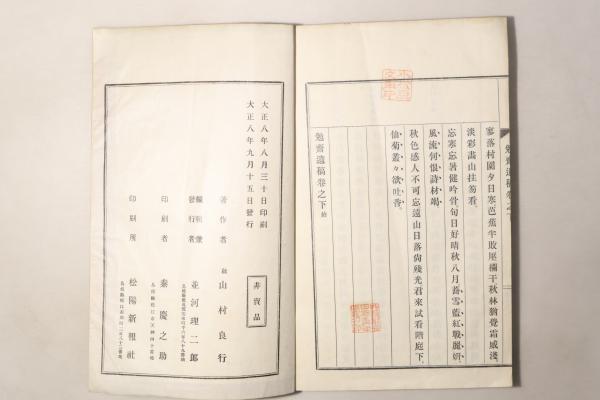 勉齋遺稿卷之下
寥落村園夕日寒芭蕉半敗壓欄干秋林猶覺霜威淺
淡彩畵山挂笏看。
忘寒忘暑健吟骨旬日好晴秋八月蕎雪藍紅戰麗妍
風流何恨詩材竭
秋色感人不可忘遠山日落尙殘光君來試看階庭下
仙菊叢々欲吐香。
勉齋遺稿卷之下 終
大正八年八月三十日印刷
大正八年九月十五日發行
非賣品
著作者 故 山村良行
編輯兼
發行者 並河理二郎
印刷者 秦慶之助
印刷所 松陽新報社